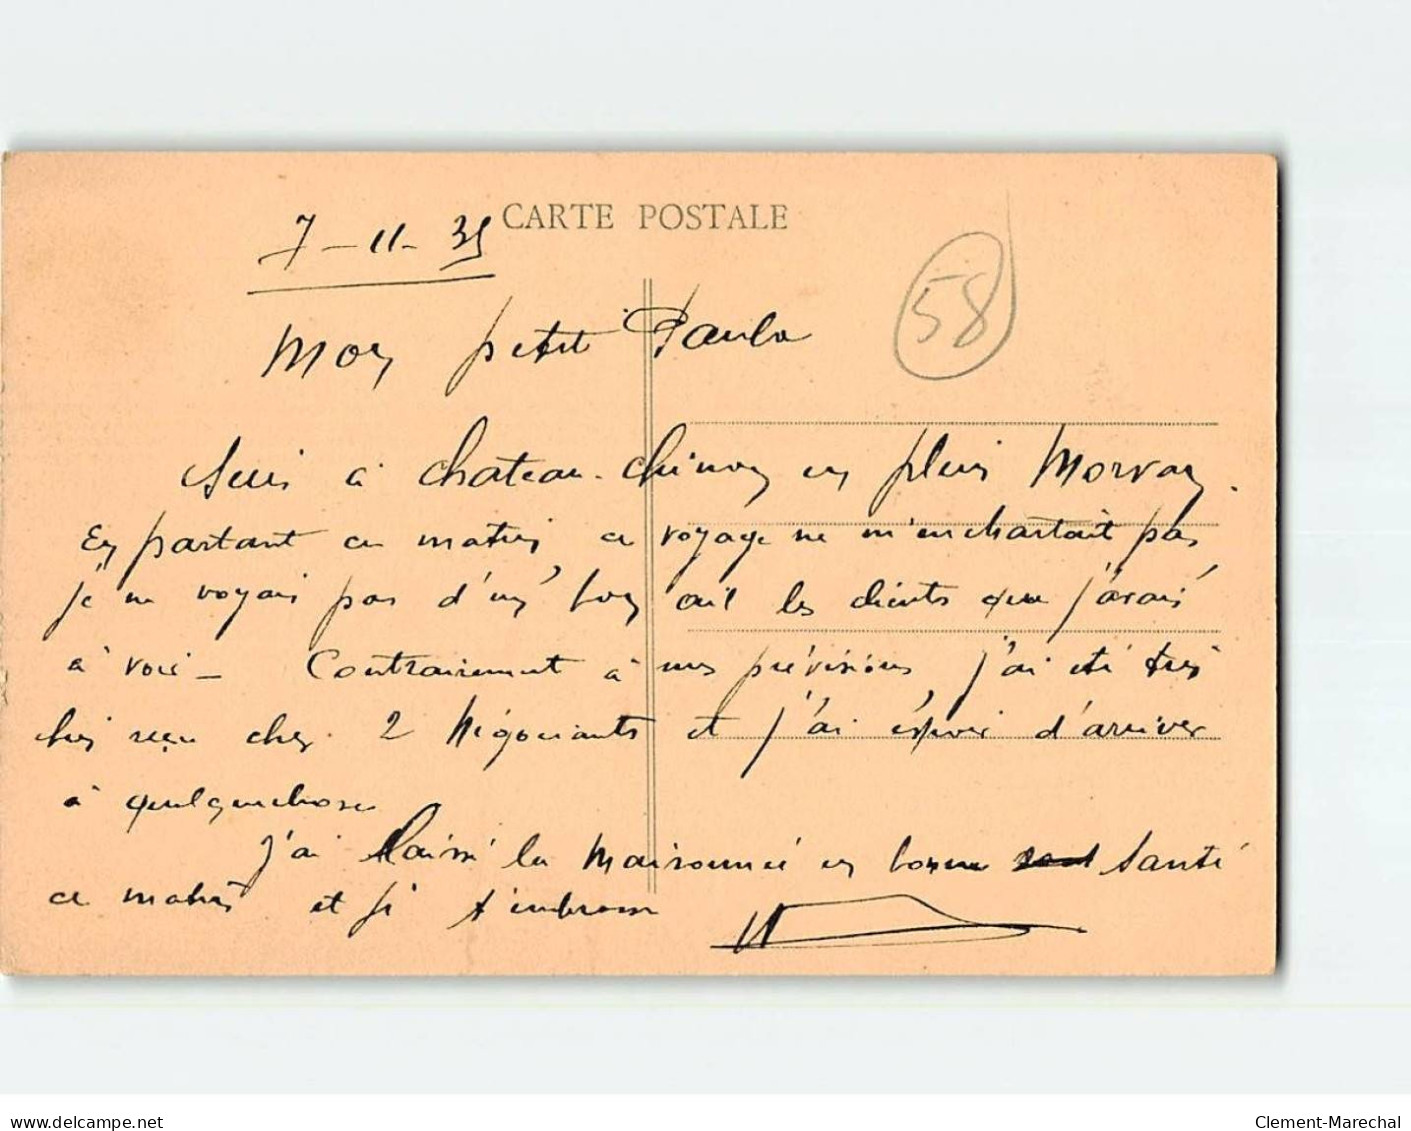 CARTE POSTALE
7-11-35
58
Mon petit Paulo
Suis à Chateau-Chinon en plein Morvan.
En partant ce matin, ce voyage ne m'enchantait pas
je ne voyais pas d'un bon œil les clients que j'avais
à voir - Contrairement à mes prévisions j'ai été très
bien reçu chez 2 Négociants et j'ai espoir d'arriver
à quelquechose
J'ai laissé la maisonnée en bonne santé
ce matin et je t'embrasse
delcampe.net
Clement-Marechal